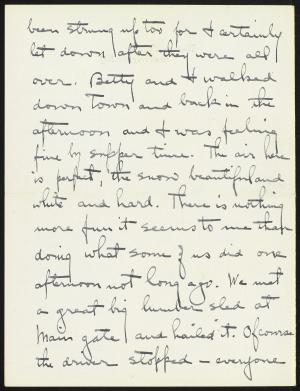 been strung up too for I certainly
let down after they were all
over. Betty and I walked
down town and back in the
afternoon and I was feeling
fine by supper time. The air here
is perfect, the snow beautiful and
white and hard. There is nothing
more fun it seems to me than
doing what some of us did one
afternoon not long ago. We met
a great big lumber sled at
Main gate and hailed it. Of course
the driver stopped - everyone